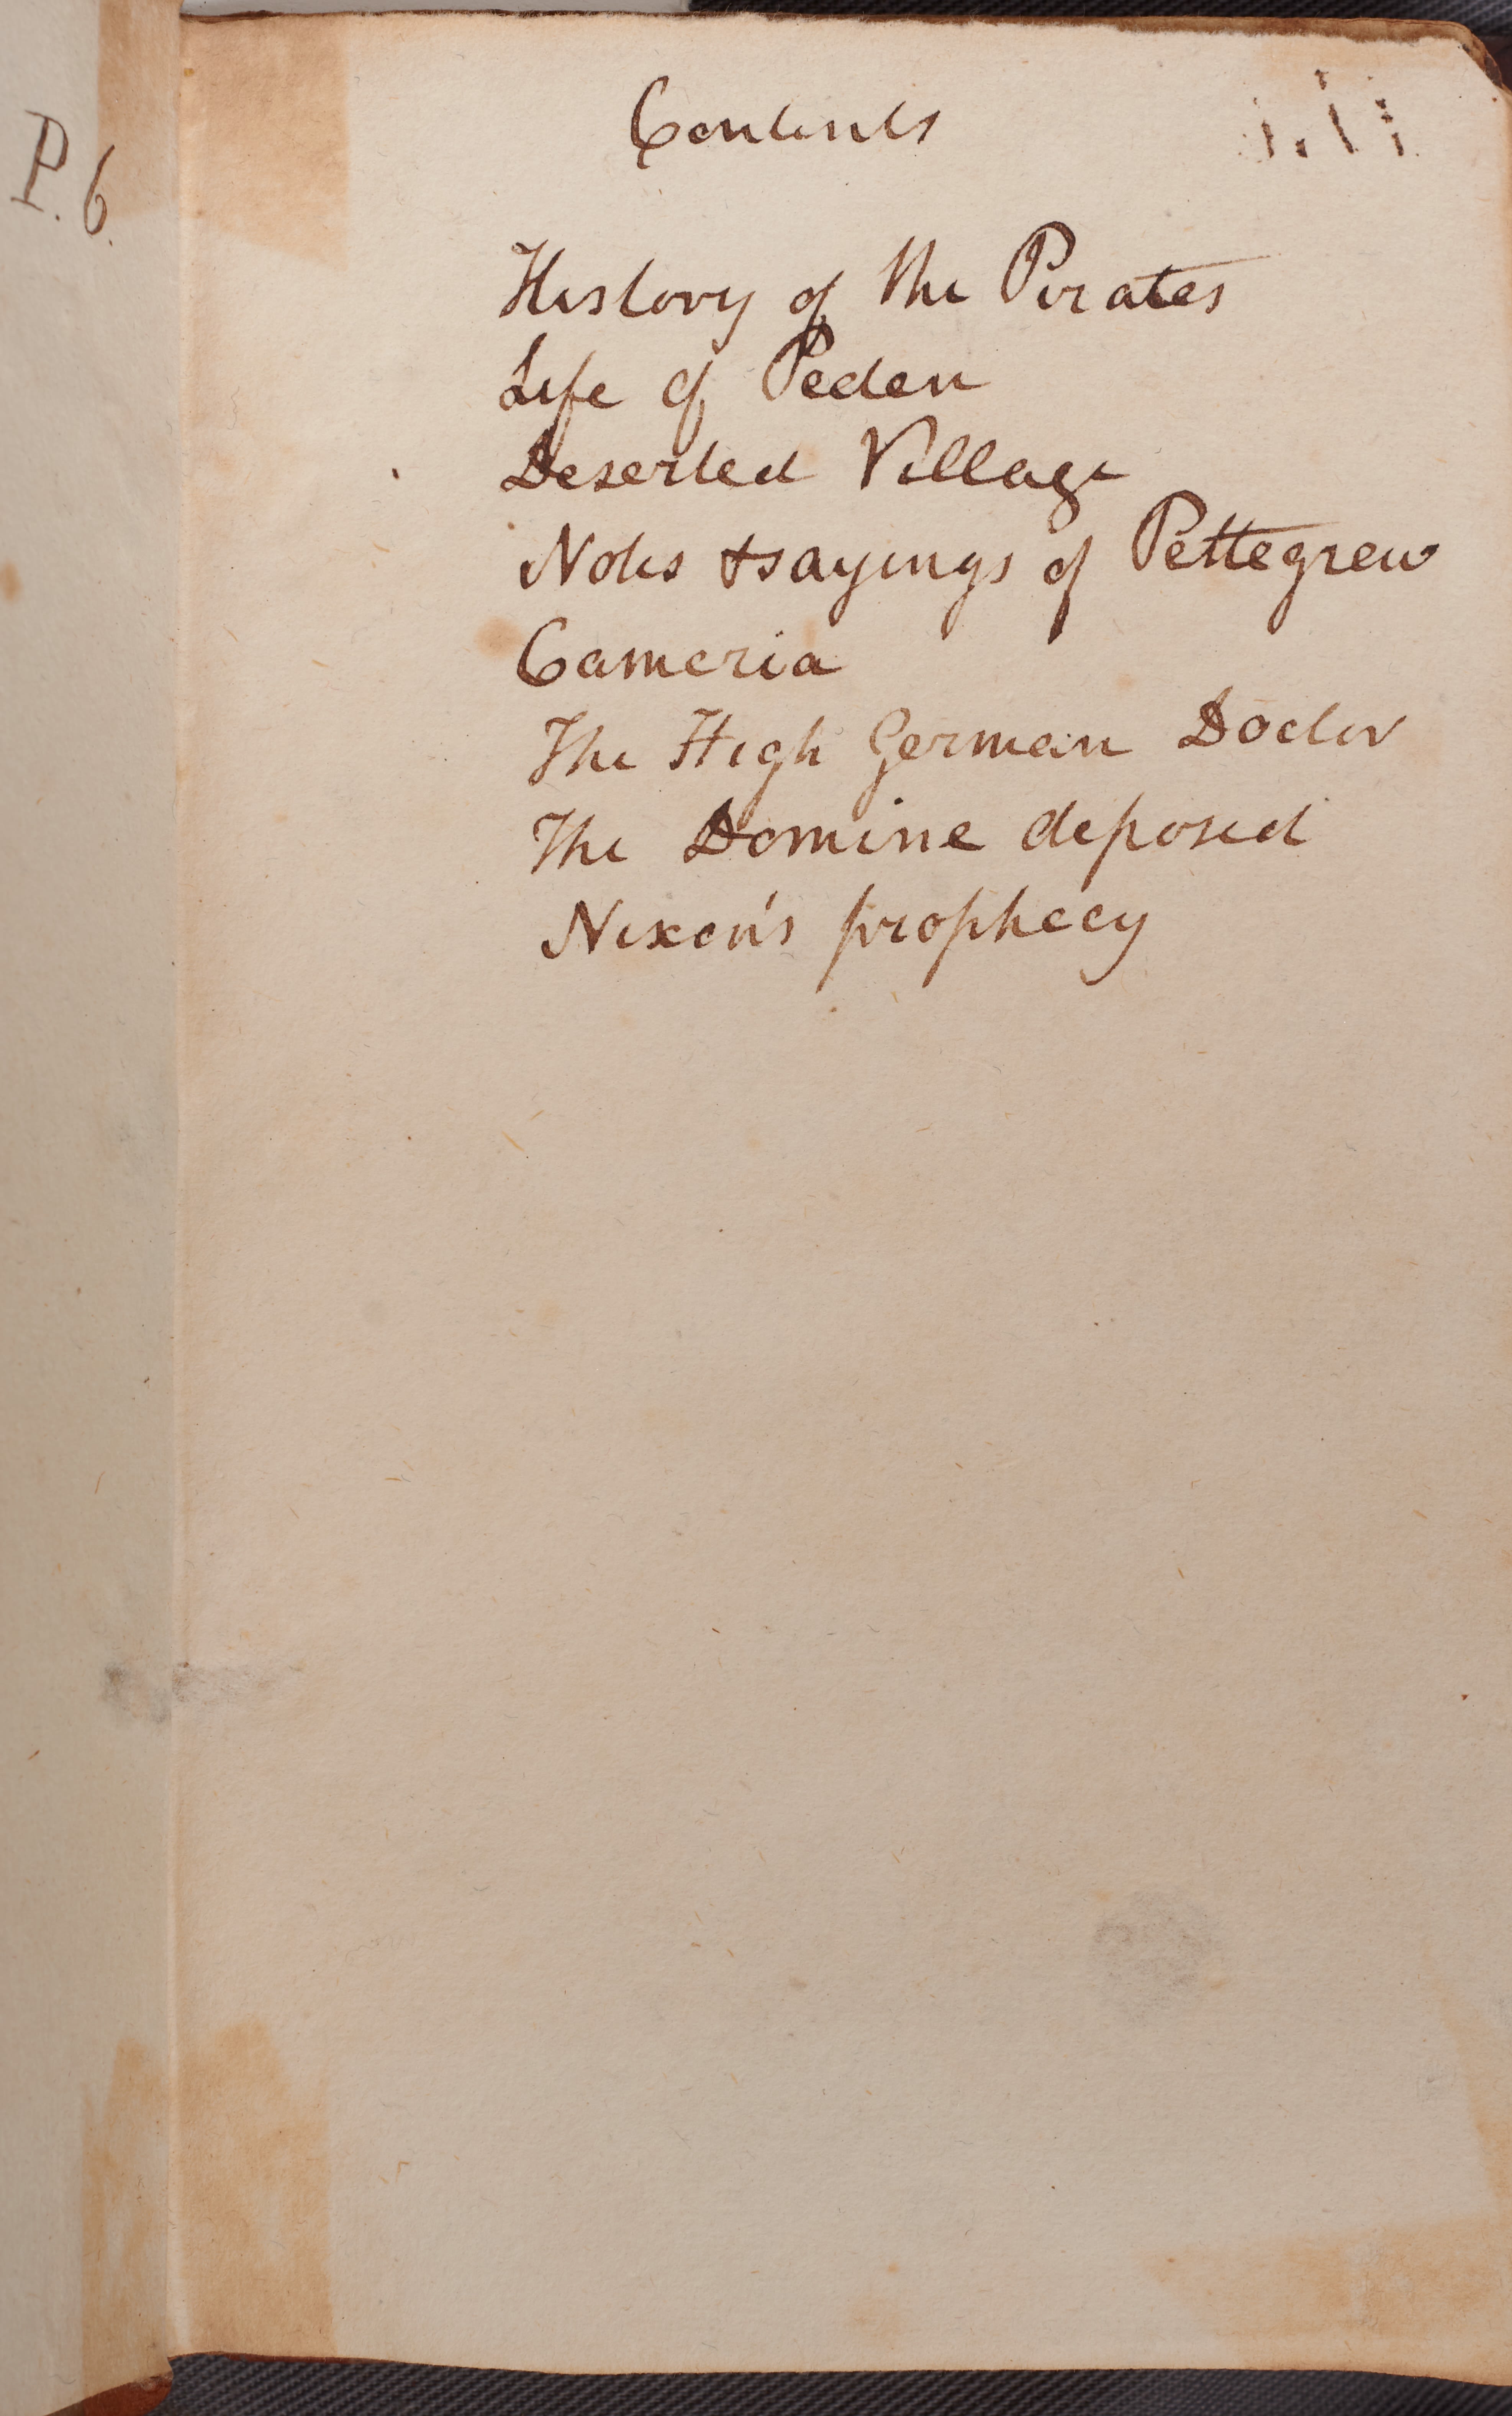 P. 6.
Contents
History of the Pirates
Life of Peden
Deserted Village
Notes & sayings of Pettegrew
Cameria
The High German Doctor
The Domine deposed
Nixon's prophecy